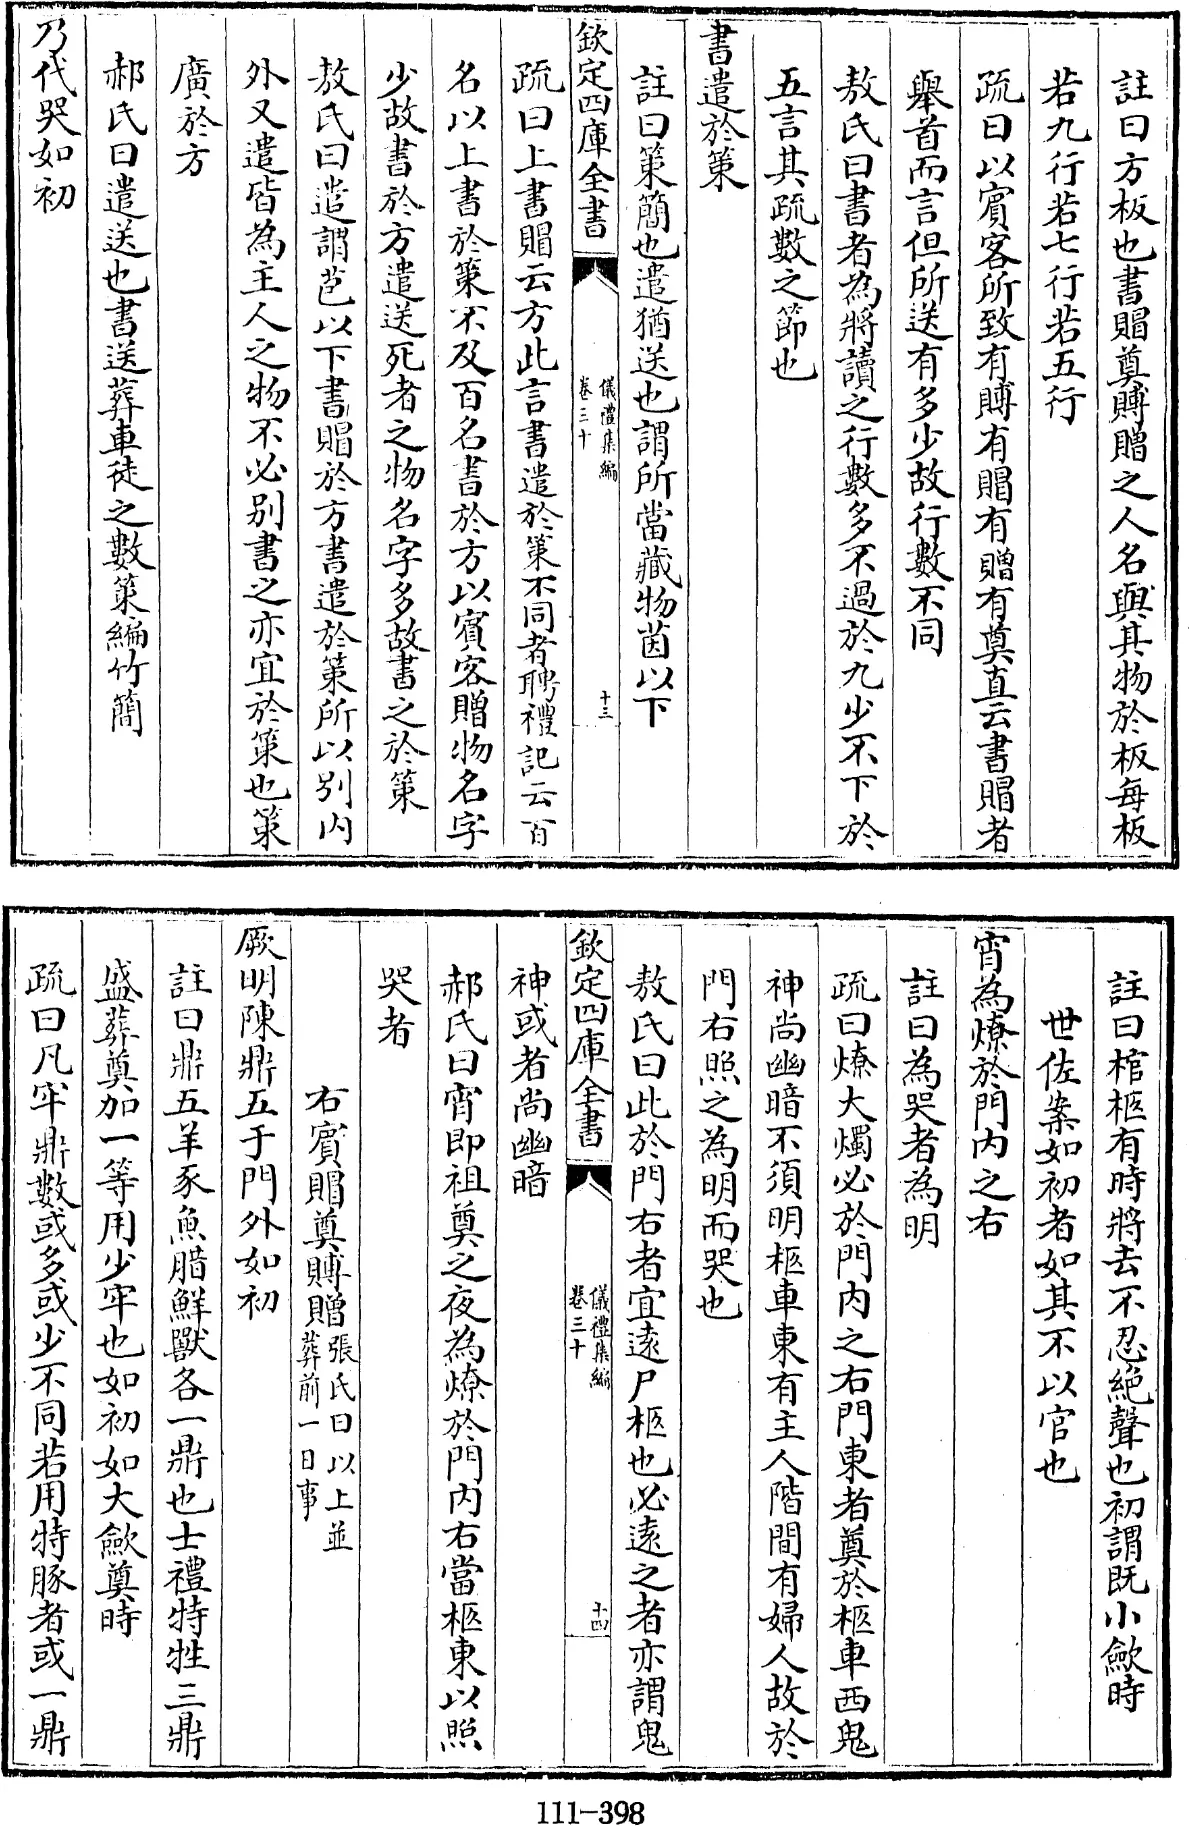 註曰方板也書賵奠賻贈之人名與其物於板每板
若九行若七行若五行
疏曰以賓客所致有賻有賵有贈有奠直云書賵者
舉首而言但所送有多少故行數不同
敖氏曰書者為將讀之行數多不過於九少不下於
五言其疏數之節也
書遣於策
註曰策簡也遣猶送也謂所當藏物茵以下
欽定四庫全書
儀禮集編
卷三十
十三
疏曰上書賵云方此言書遣於策不同者聘禮記云百
名以上書於策不及百名書於方以賓客贈物名字
少故書於方遣送死者之物名字多故書之於策
敖氏曰遣謂苞以下書賵於方書遣於策所以別內
外又遣皆為主人之物不必別書之亦宜於策也策
廣於方
郝氏曰遣送也書送葬車徒之數策編竹簡
乃代哭如初
註曰棺柩有時將去不忍絕聲也初謂既小斂時
世佐案如初者如其不以官也
宵為燎於門內之右
註曰為哭者為明
疏曰燎大燭必於門內之右門東者奠於柩車西鬼
神尚幽暗不須明柩車東有主人階間有婦人故於
門右照之為明而哭也
敖氏曰此於門右者宜遠尸柩也必遠之者亦謂鬼
欽定四庫全書
儀禮集編
卷三十
十四
神或者尚幽暗
郝氏曰宵即祖奠之夜為燎於門內右當柩東以照
哭者
右賓賵奠賻贈張氏曰以上並葬前一日事
厥明陳鼎五于門外如初
註曰鼎五羊豕魚腊鮮獸各一鼎也士禮特牲三鼎
盛葬奠加一等用少牢也如初如大斂奠時
疏曰凡牢鼎數或多或少不同若用特豚者或一鼎
111-398